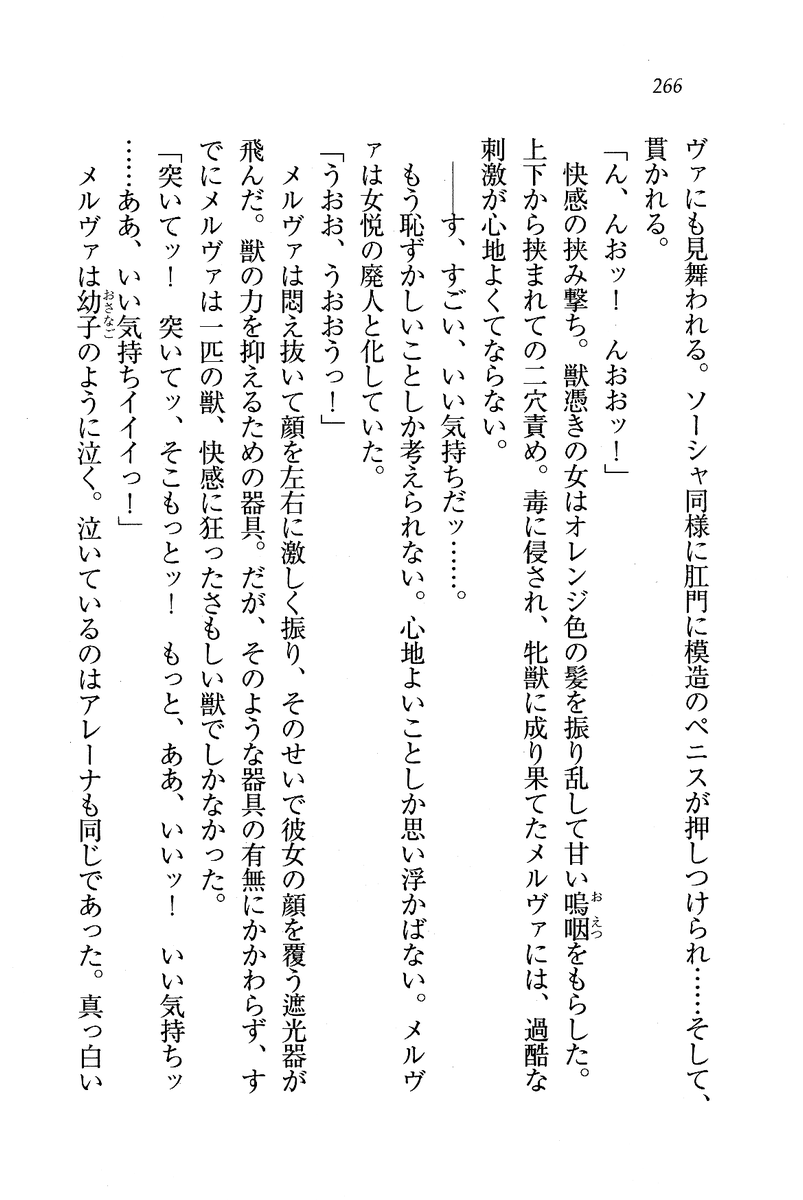 266
ヴァにも見舞われる。ソーシャ同様に肛門に模造のペニスが押しつけられ……そして、
貫かれる。
「ん、んおッ！　んおおッ！」
快感の挟み撃ち。獣憑きの女はオレンジ色の髪を振り乱して甘い嗚咽をもらした。
おえつ
上下から挟まれての二穴責め。毒に侵され、牝獣に成り果てたメルヴァには、過酷な
刺激が心地よくてならない。
――す、すごい、いい気持ちだッ……。
もう恥ずかしいことしか考えられない。心地よいことしか思い浮かばない。メルヴ
ァは女悦の廃人と化していた。
「うおお、うおおうっ！」
メルヴァは悶え抜いて顔を左右に激しく振り、そのせいで彼女の顔を覆う遮光器が
飛んだ。獣の力を抑えるための器具。だが、そのような器具の有無にかかわらず、す
でにメルヴァは一匹の獣、快感に狂ったさもしい獣でしかなかった。
「突いてッ！　突いてッ、そこもっとッ！　もっと、ああ、いいッ！　いい気持ちッ
……ああ、いい気持ちイイイっ！」
メルヴァは幼子のように泣く。泣いているのはアレーナも同じであった。真っ白い
おさなご